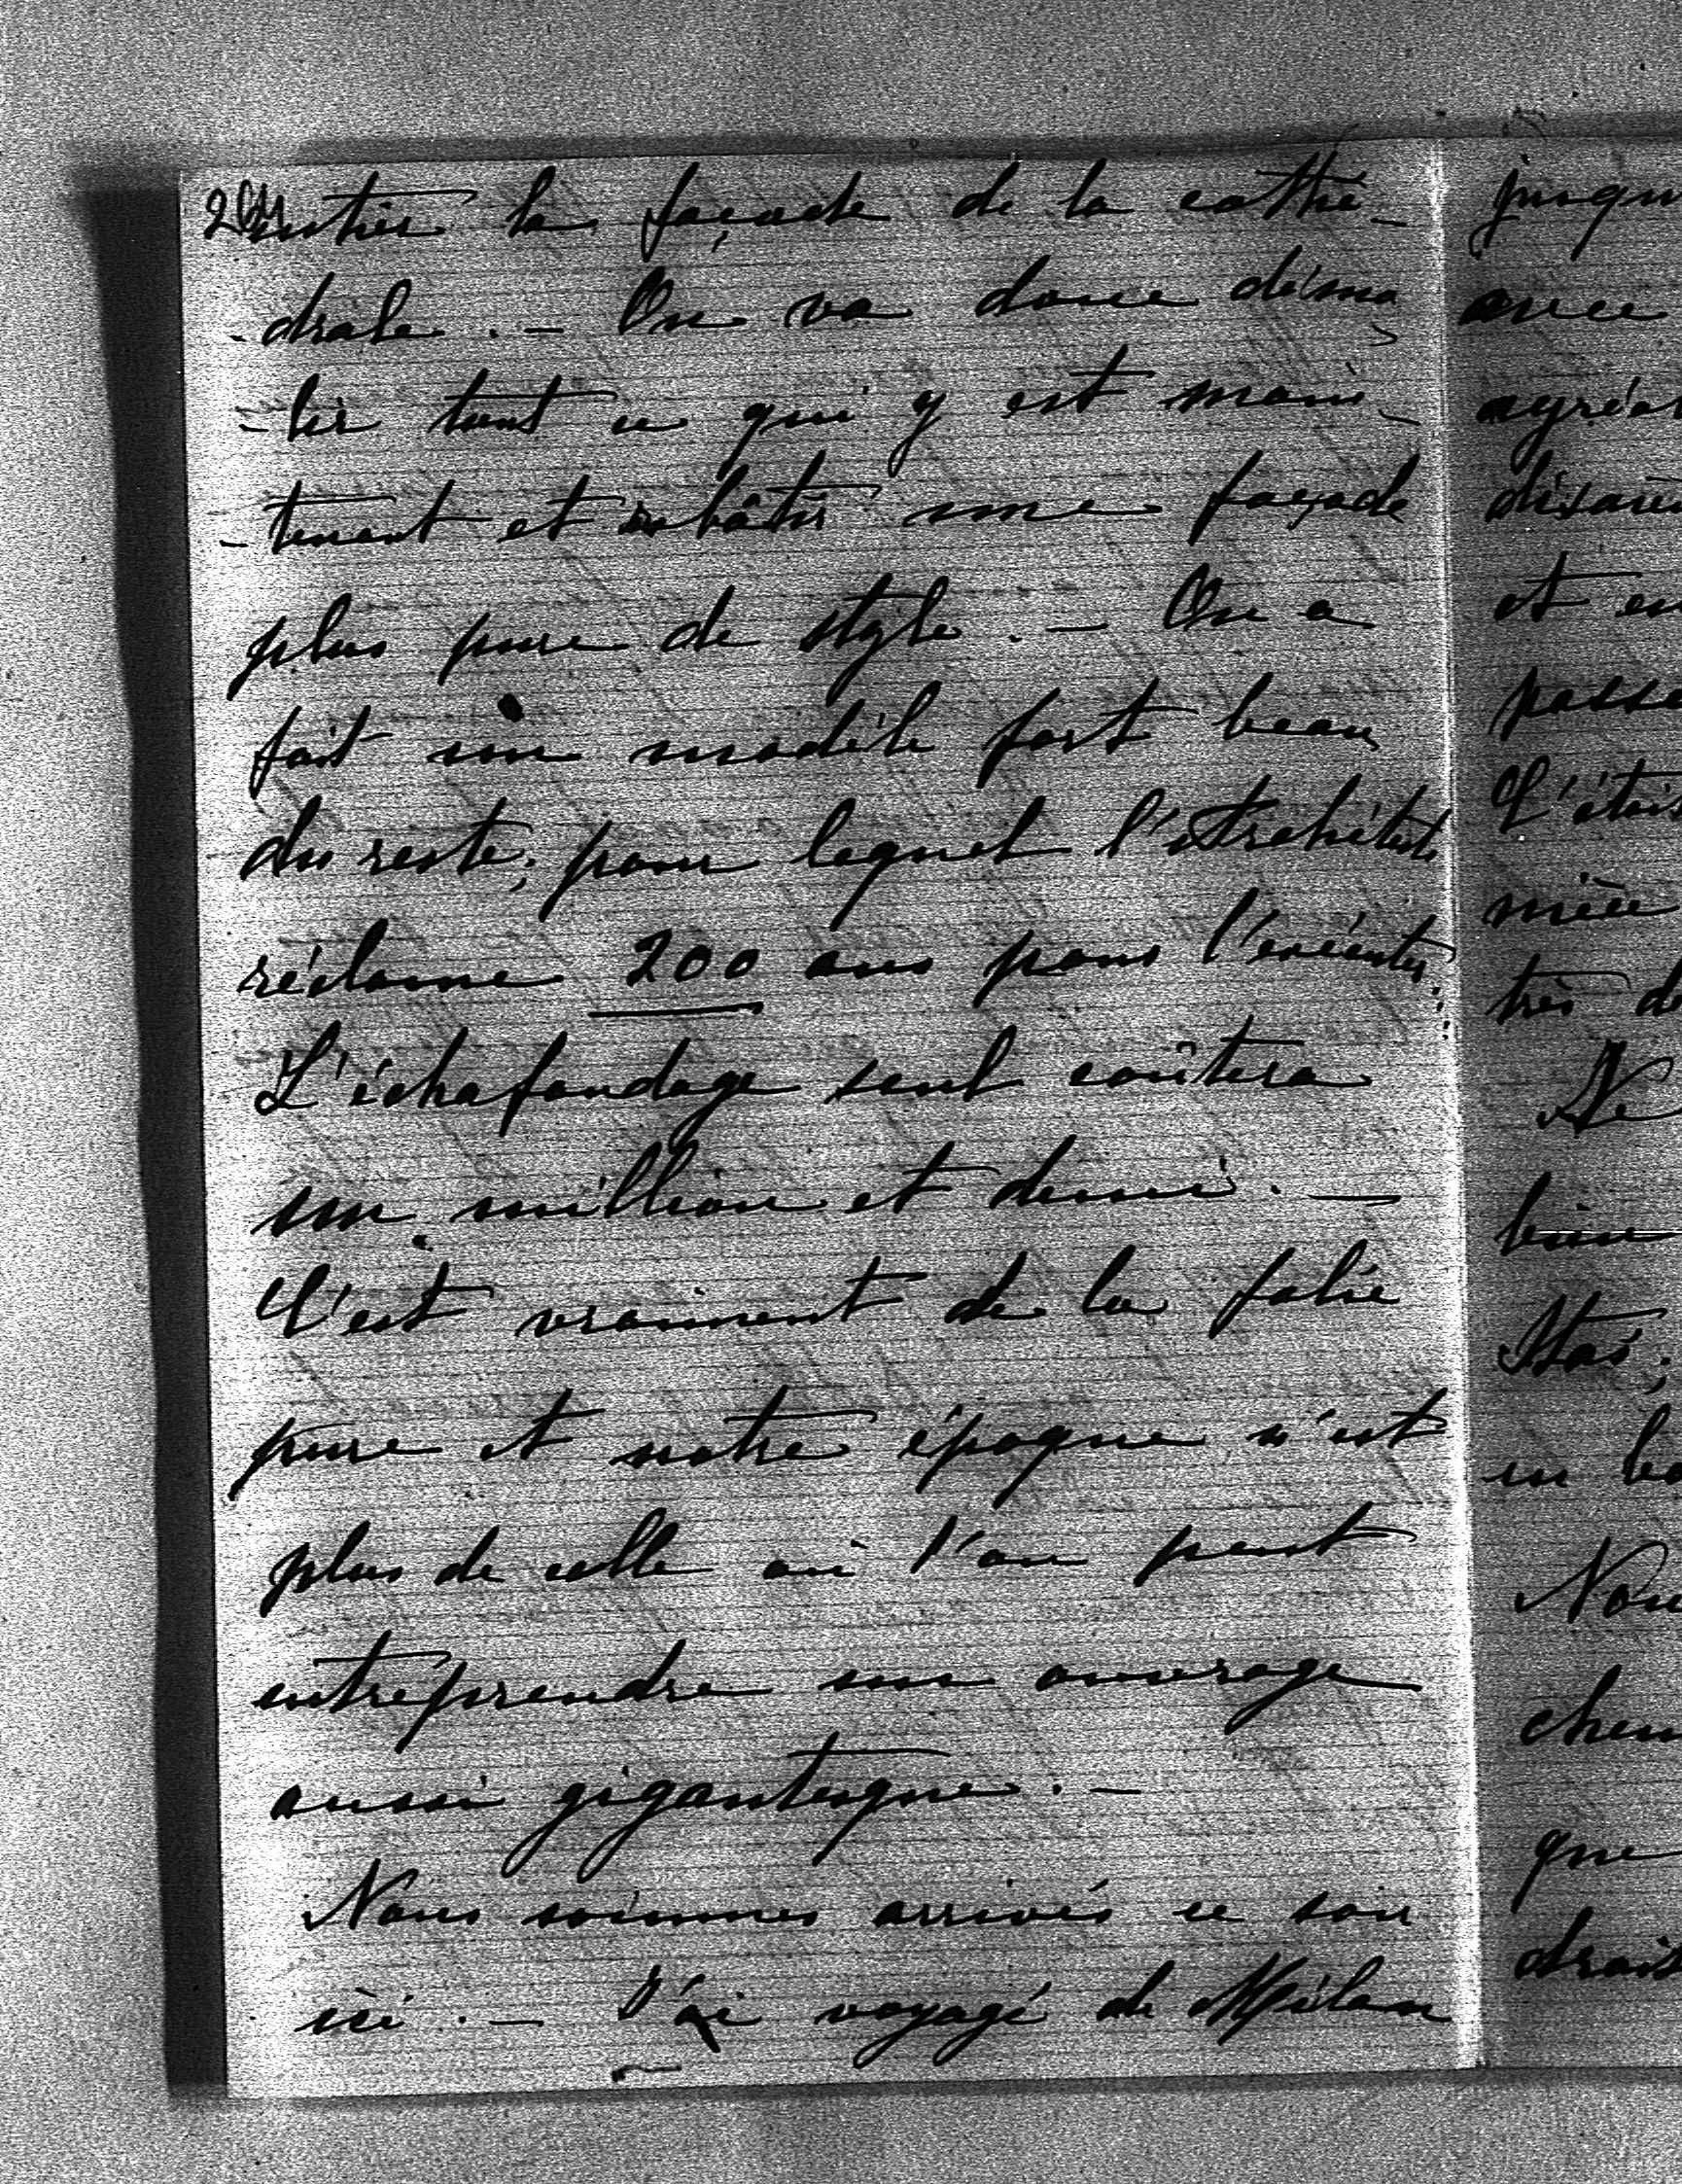 entier la façade de la cathé-
-drale. - On va donc démo
-lir tout ce qui y est main-
-tenant et rebâtir une façade
plus pure de style. - On a
fait un modèle fort beau
du reste; pour lequel l'architecte
réclame 200 ans pour l'exécuter.
L'échafaudage seul coûtera
un million et demi. -
C'est vraiment de la folie
pure et notre époque n'est
plus de celle où l'on peut
entreprendre un ouvrage
aussi gigantesque. -
Nous sommes arrivés ce soir
ici. - J'ai voyagé de Milan
jusqu
avec
agréa
disaie
et en
passe
C'étai
mière
très d
Ne
bien
Stas;
en bo
Nou
chem
que
droit